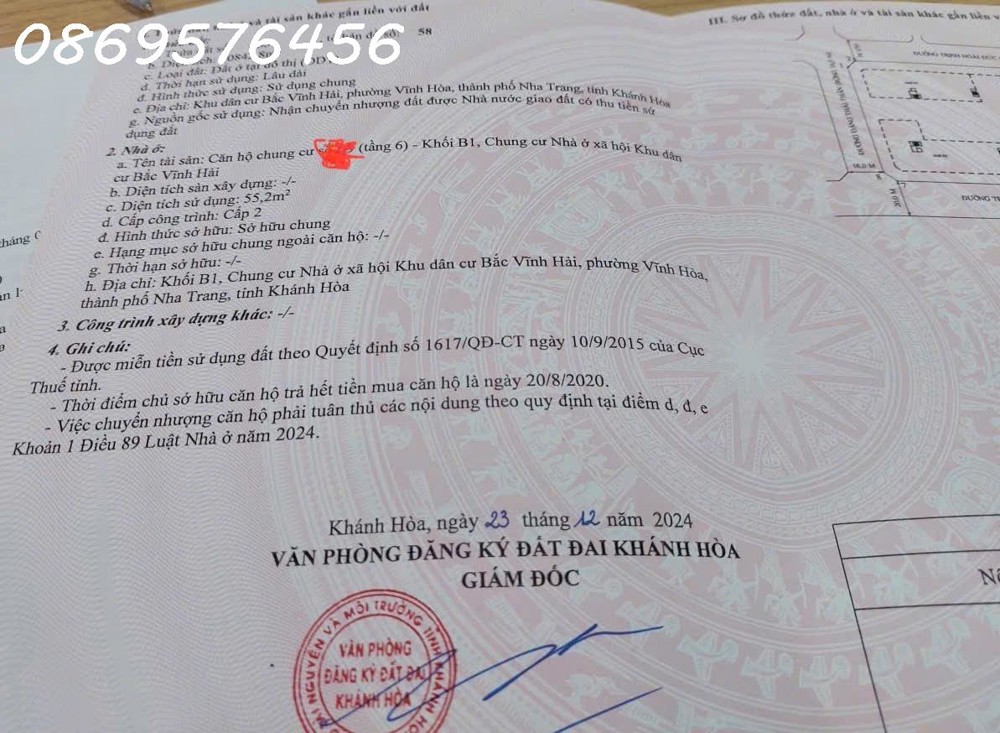 0869576456
và tài sản khác gắn liền với đất
58
c. Loại đất: Đất ở tại đô thị
d. Thời hạn sử dụng: Lâu dài
đ. Hình thức sử dụng: Sử dụng chung
e. Địa chỉ: Khu dân cư Bắc Vĩnh Hải, phường Vĩnh Hòa, thành phố Nha Trang, tỉnh Khánh Hòa
g. Nguồn gốc sử dụng: Nhận chuyển nhượng đất được Nhà nước giao đất có thu tiền sử
dụng đất
2. Nhà ở:
a. Tên tài sản: Căn hộ chung cư (tầng 6) – Khối B1, Chung cư Nhà ở xã hội Khu dân
cư Bắc Vĩnh Hải
b. Diện tích sàn xây dựng: -/-
c. Diện tích sử dụng: 55,2m²
d. Cấp công trình: Cấp 2
đ. Hình thức sở hữu: Sở hữu chung
e. Hạng mục sở hữu chung ngoài căn hộ: -/-
g. Thời hạn sở hữu: -/-
h. Địa chỉ: Khối B1, Chung cư Nhà ở xã hội Khu dân cư Bắc Vĩnh Hải, phường Vĩnh Hòa,
thành phố Nha Trang, tỉnh Khánh Hòa
3. Công trình xây dựng khác: -/-
4. Ghi chú:
- Được miễn tiền sử dụng đất theo Quyết định số 1617/QĐ-CT ngày 10/9/2015 của Cục
Thuế tỉnh.
- Thời điểm chủ sở hữu căn hộ trả hết tiền mua căn hộ là ngày 20/8/2020.
- Việc chuyển nhượng căn hộ phải tuân thủ các nội dung theo quy định tại điểm d, đ, e
Khoản 1 Điều 89 Luật Nhà ở năm 2024.
Khánh Hòa, ngày 23 tháng 12 năm 2024
VĂN PHÒNG ĐĂNG KÝ ĐẤT ĐAI KHÁNH HÒA
GIÁM ĐỐC
VĂN PHÒNG
ĐĂNG KÝ ĐẤT ĐAI
KHÁNH HÒA
III. Sơ đồ thửa đất, nhà ở và tài sản khác gắn liền